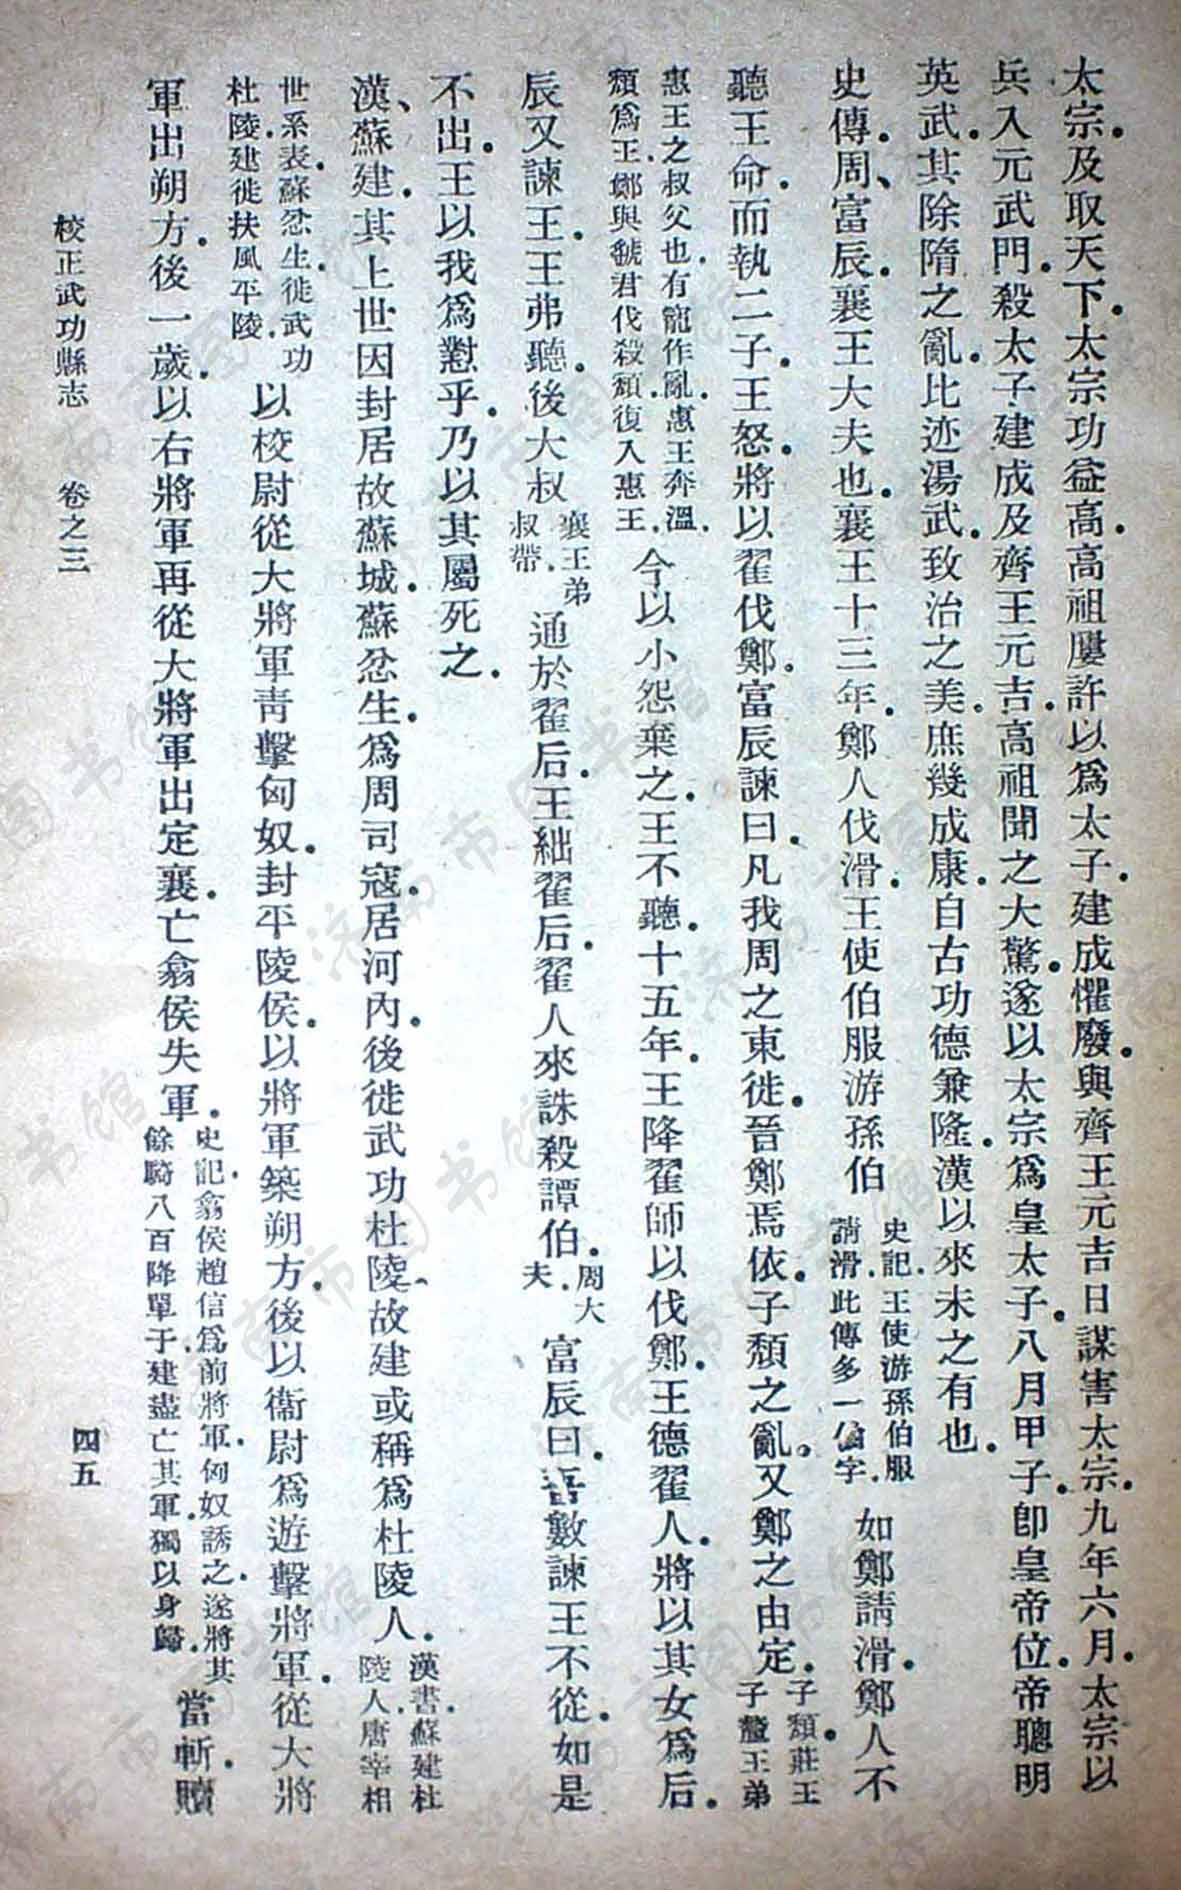 太宗.及取天下.太宗功益高.高祖屢許以爲太子.建成懼廢.與齊王元吉日謀害太宗.九年六月.太宗以
兵入元武門.殺太子建成及齊王元吉.高祖聞之大驚.遂以太宗爲皇太子.八月甲子.卽皇帝位.帝聰明
英武.其除隋之亂.比迹湯武.致治之美.庶幾成康.自古功德兼隆.漢以來未之有也.
史傳.周、富辰.襄王大夫也.襄王十三年.鄭人伐滑.王使伯服游孫伯史記.王使游孫伯服請滑.此傳多一伯字.如鄭請滑.鄭人不
聽王命.而執二子.王怒.將以翟伐鄭.富辰諫曰.凡我周之東徙.晉鄭焉依.子頹之亂.又鄭之由定.子頹.莊王子.釐王弟
惠王之叔父也.有寵作亂.惠王奔溫.頹爲王.鄭與虢君伐殺頹.復入惠王.今以小怨棄之.王不聽.十五年.王降翟師以伐鄭.王德翟人.將以其女爲后.
辰又諫王.王弗聽.後大叔襄王弟叔帶.通於翟后.王絀翟后.翟人來誅殺譚伯.周大夫.富辰曰.吾數諫王不從.如是
不出.王以我爲懟乎.乃以其屬死之.
漢、蘇建.其上世因封居故蘇城.蘇忿生.爲周司寇.居河內.後徙武功杜陵.故建或稱爲杜陵人.漢書.蘇建杜陵人.唐宰相
世系表.蘇忿生.徙武功杜陵.建徙扶風平陵.以校尉從大將軍靑擊匈奴.封平陵侯.以將軍築朔方.後以衞尉爲遊擊將軍.從大將
軍出朔方.後一歲.以右將軍再從大將軍出定襄.亡翕侯失軍.史記.翕侯趙信爲前將軍.匈奴誘之.遂將其餘騎八百降單于.建盡亡其軍.獨以身歸.當斬.贖
校正武功縣志 卷之三 四五